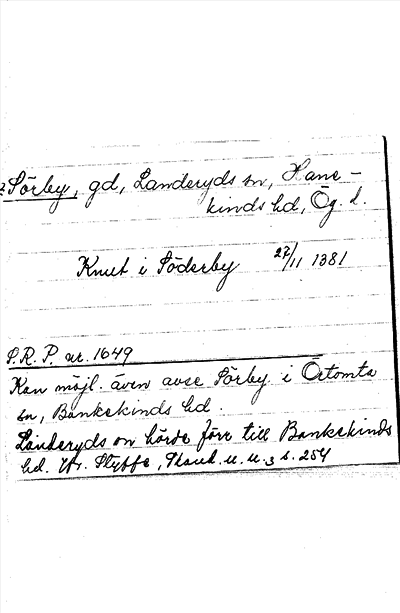 Sörby, gd, Landeryds sn, Hane-
kinds hd, Ög. l.
Knut i Söderby 27/11 1381
S.R.P. nr. 1649
Kan möjl. även avse Sörby i Örtomta
sn, Bankekinds hd.
Landeryds sn hörde förr till Bankekinds
hd. Jfr. Styffe, Skand. u. u. 3 s. 254